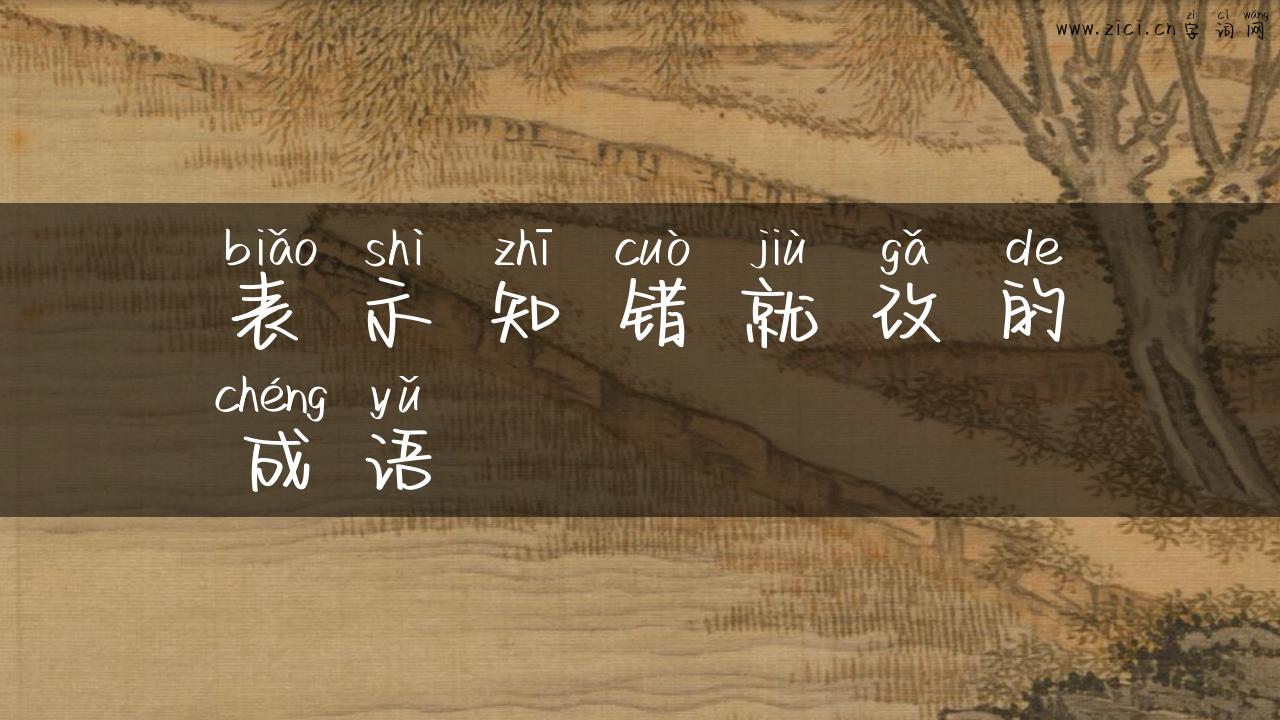 zì cí wǎng
www.zici.cn字词网
biǎo shì zhī cuò jiù gǎ de
表示知错就改的
chéng yǔ
成语